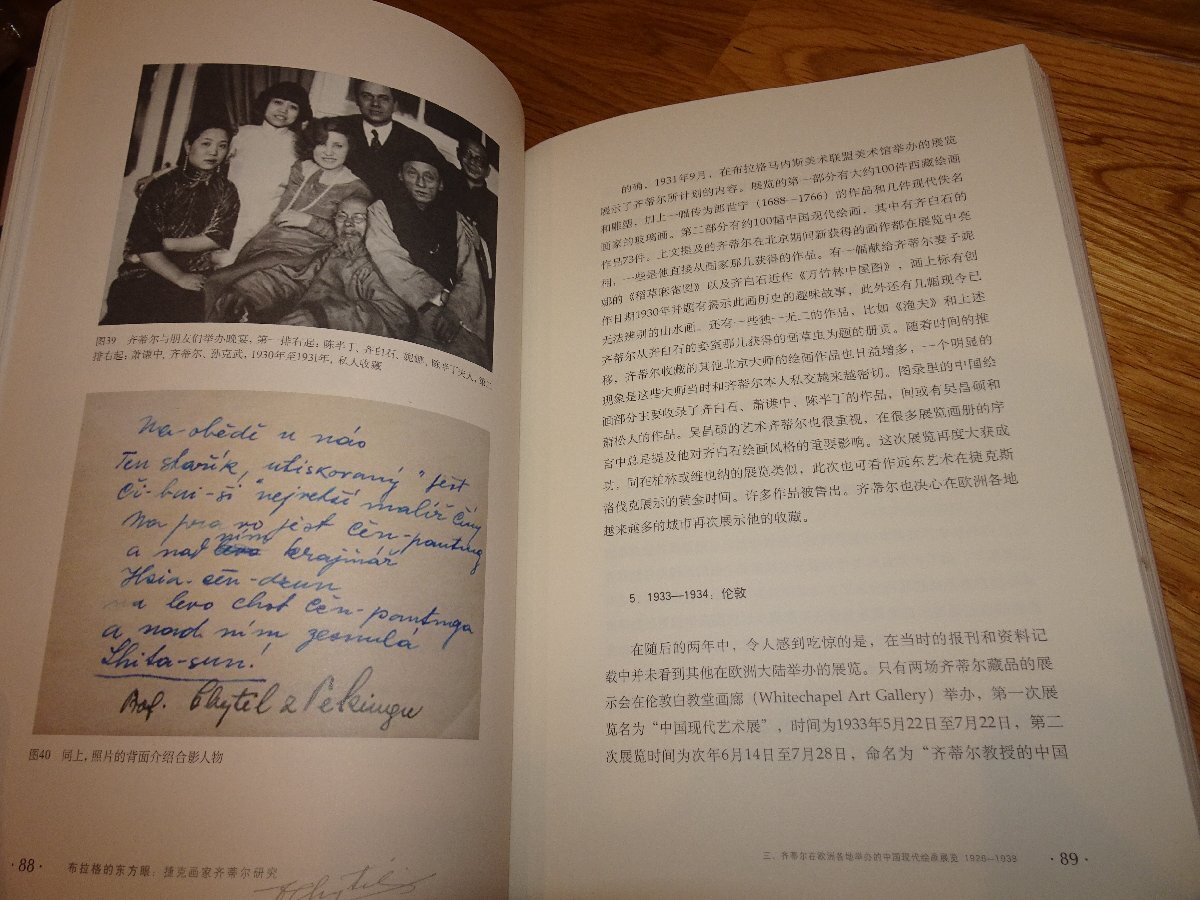 图39 齐蒂尔与朋友们举办晚宴，第一排右起：陈半丁、齐白石、妮娜、陈半丁夫人，第二
排右起：萧谦中、齐蒂尔、孙克武，1930年至1931年，私人收藏
Na obědě u nás
Ten stařík, utiskovaný" jest
Či-bai-ši "největší malíř Číny
Na pravo jest Čen-panting
a nad ním krajinář
Hsia-čen-dzun
na levo choť Čen-pantinga
a nad ním zesnulá
Shita-sun!
Prof. Chytil z Pekingu
图40 同上，照片的背面介绍合影人物
·88· 布拉格的东方眼：捷克画家齐蒂尔研究
的确，1931年9月，在布拉格马内斯美术联盟美术馆举办的展览
展示了齐蒂尔所计划的内容。展览的第一部分有大约100件西藏绘画
和雕塑，加上一幅传为郎世宁（1688—1766）的作品和几件现代佚名
画家的玻璃画。第二部分有约100幅中国现代绘画，其中有齐白石的
作品73件，上文提及的齐蒂尔在北京期间新获得的画作都在展览中亮
相，一些是他直接从画家那儿获得的作品。有一幅献给齐蒂尔妻子妮
娜的《稻草麻雀图》以及齐白石近作《月竹林中国图》，画上标有创
作日期1930年并题有揭示此画历史的趣味故事，此外还有几幅现今已
无法辨别的山水画。还有一些独一无二的作品，比如《渔夫》和上述
齐蒂尔从齐白石的妾室那儿获得的画草虫为题的册页。随着时间的推
移，齐蒂尔收藏的其他北京大师的绘画作品也日益增多，一个明显的
现象是这些大师当时和齐蒂尔本人私交越来越密切。图录里的中国绘
画部分主要收录了齐白石、萧谦中、陈半丁的作品，间或有吴昌硕和
萧松人的作品。吴昌硕的艺术齐蒂尔也很重视，在很多展览画册的序
言中总是提及他对齐白石绘画风格的重要影响。这次展览再度大获成
功，同在柏林或维也纳的展览类似，此次也可看作远东艺术在捷克斯
洛伐克展示的黄金时间。许多作品被售出。齐蒂尔也决心在欧洲各地
越来越多的城市再次展示他的收藏。
5．1933—1934：伦敦
在随后的两年中，令人感到吃惊的是，在当时的报刊和资料记
载中并未看到其他在欧洲大陆举办的展览。只有两场齐蒂尔藏品的展
示会在伦敦白教堂画廊（Whitechapel Art Gallery）举办，第一次展
览名为“中国现代艺术展”，时间为1933年5月22日至7月22日，第二
次展览时间为次年6月14日至7月28日，命名为“齐蒂尔教授的中国
三、齐蒂尔在欧洲各地举办的中国现代绘画展览 1926—1938 ·89·